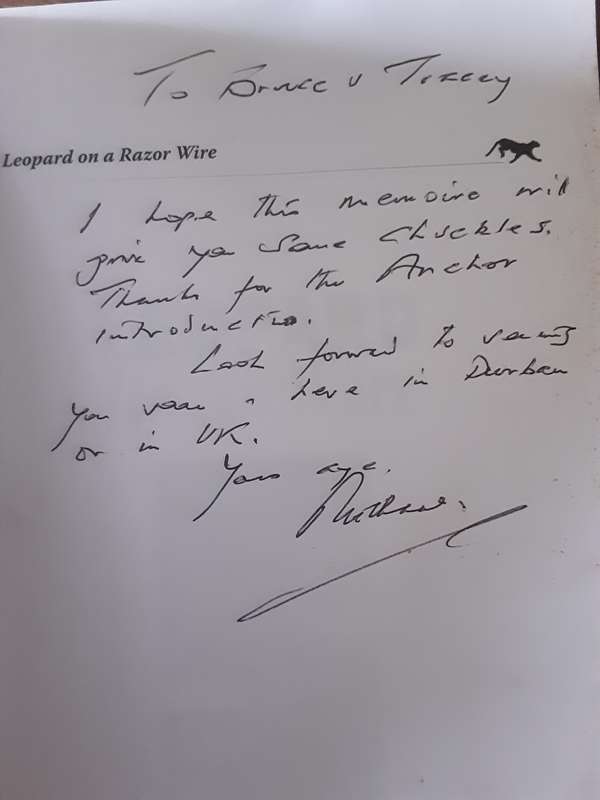 To Bruce & Tracey
Leopard on a Razor Wire
I hope this memoire will
give you some chuckles.
Thanks for the Anchor
introduction.
Look forward to seeing
you here in Durban
or in UK.
Yours aye.